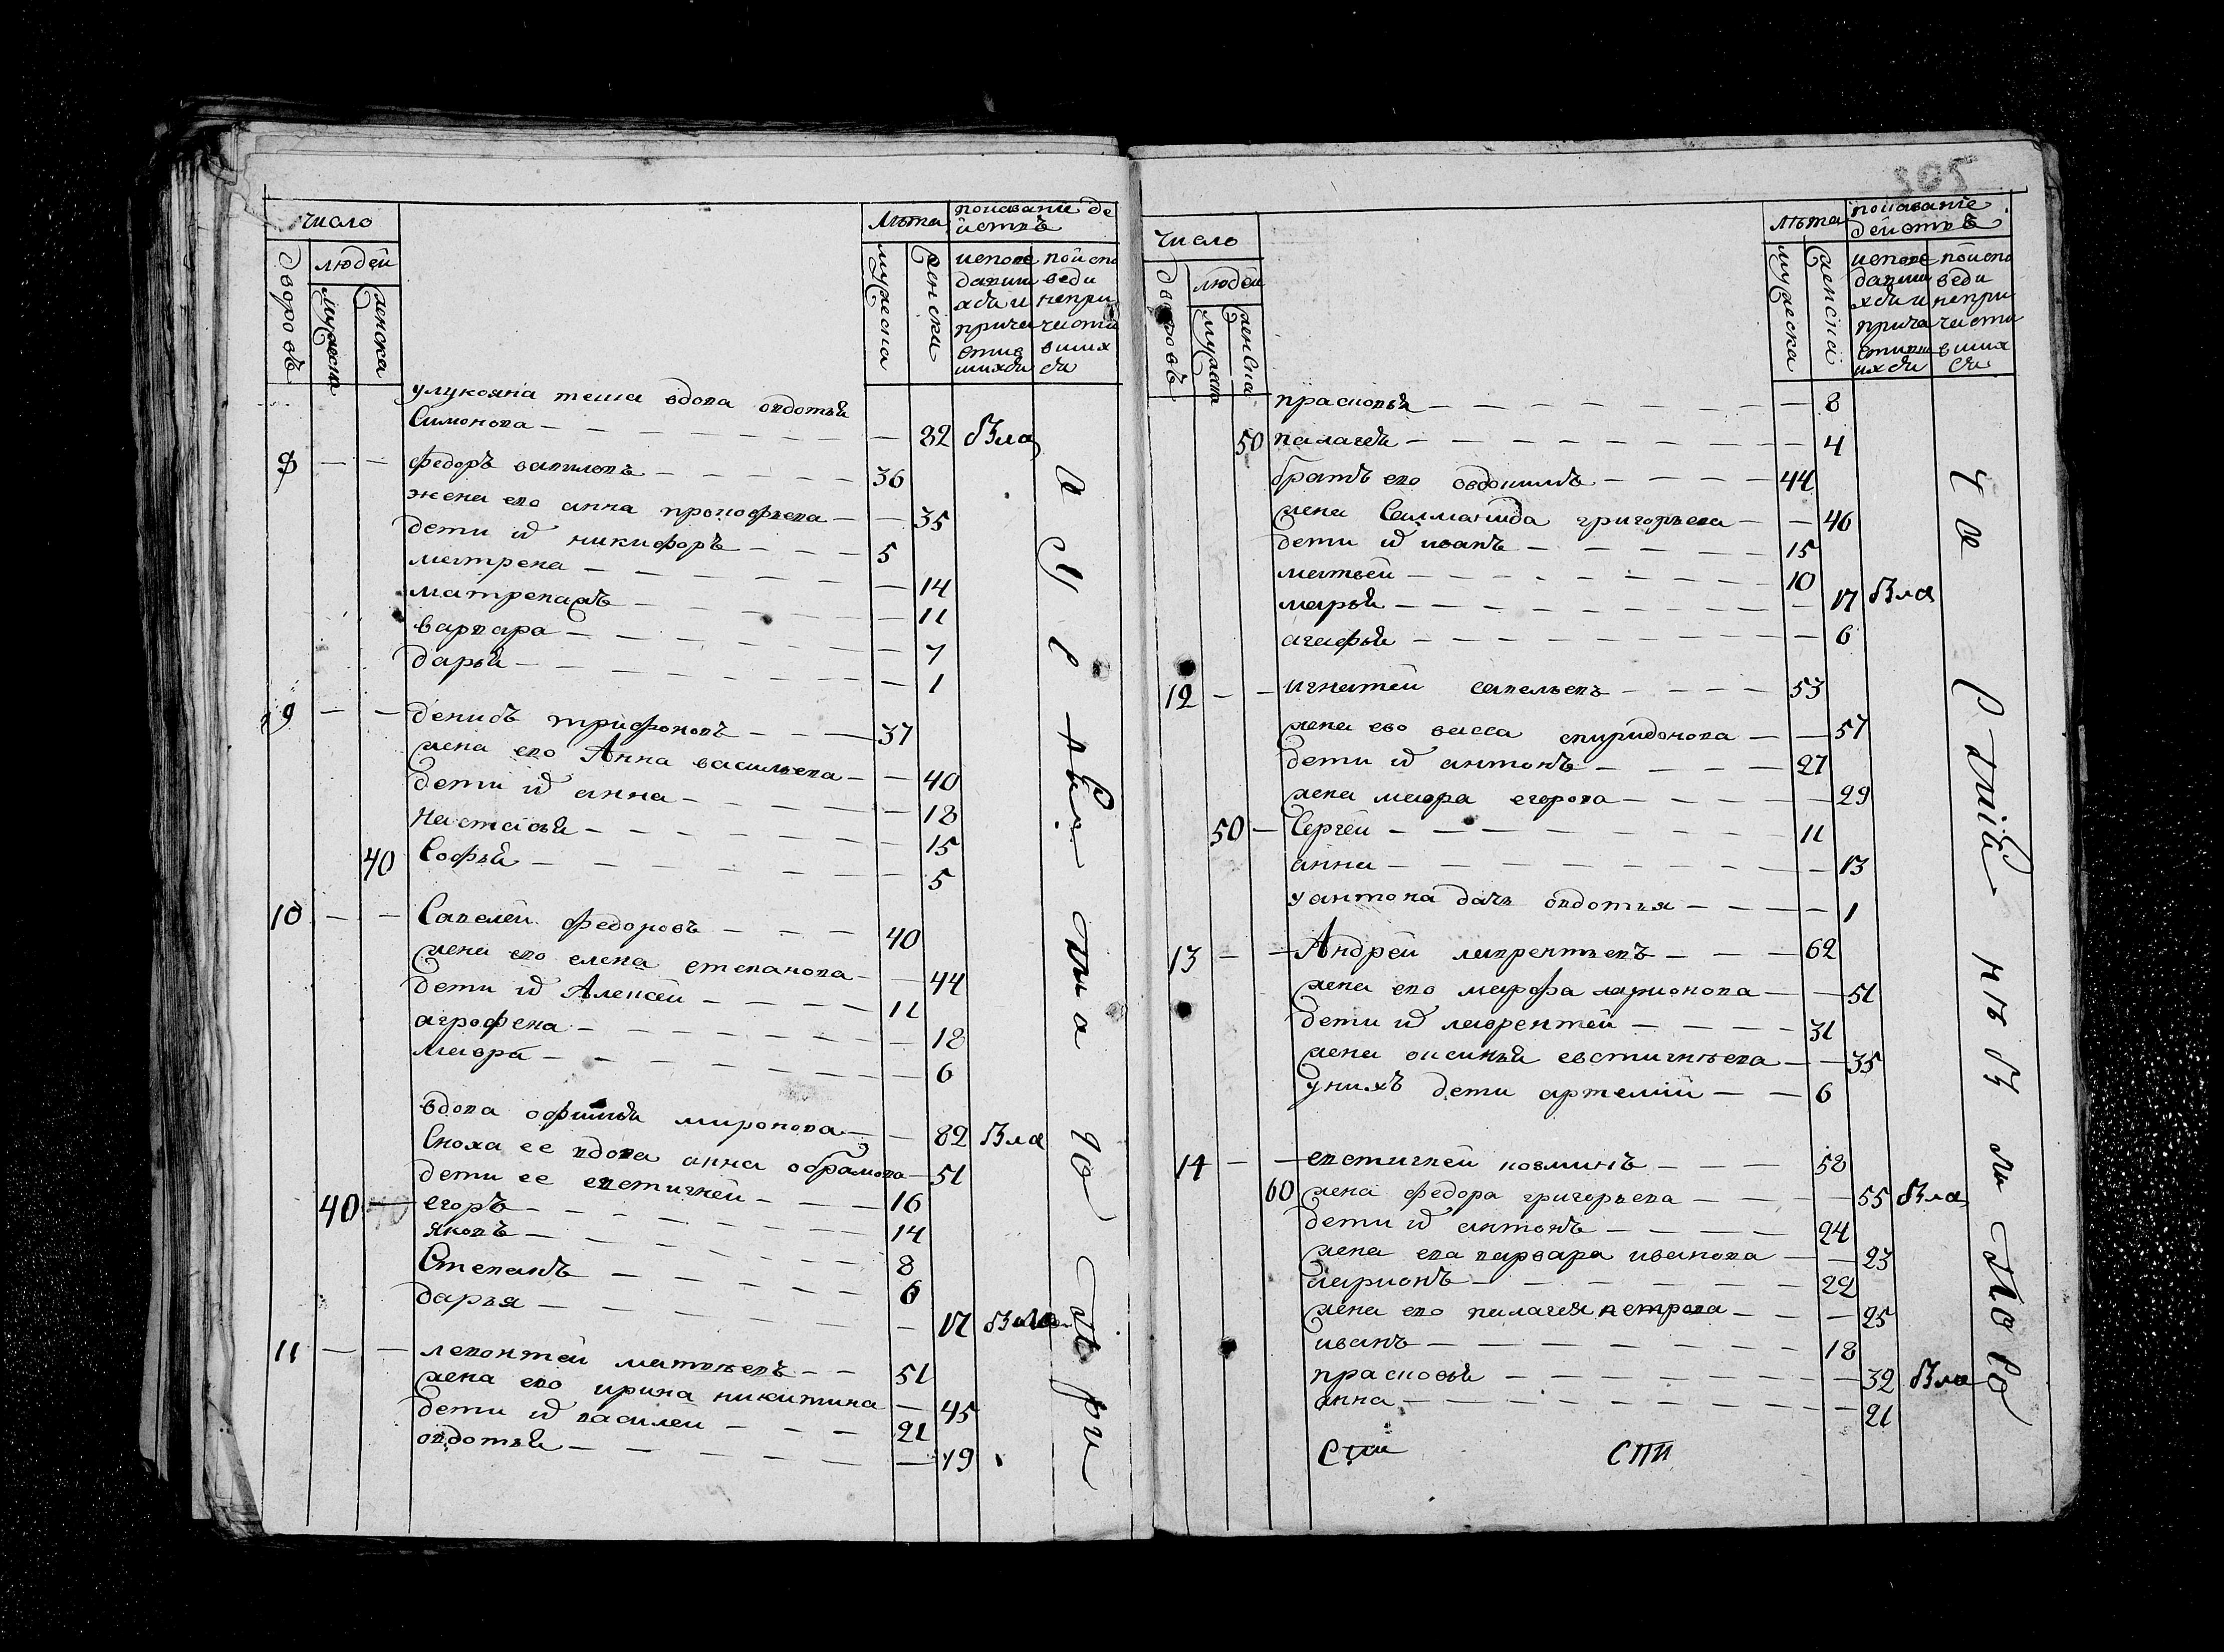 число
Лѣта
показание де
иствъ
дворовъ
людей
мужеска
женска
мужеска
женски
испове
дапши
хся и
прича
стив
шихся
поиспо
веди
непри
чиста
вших
ся
улукояна теша вдова овдотья
Симонова — — 82 была
8 — — федоръ вавиловъ — — 36
жена ево анна прокофьева — — 35
дети их никифоръ — — 5
матрена — — 14
матрена жъ — — 11
варвара — — 7
дарья — — 1
9 — — денисъ трифоновъ — — 37
жена ево Анна васильева — — 40
дети их анна — — 18
настасья — — 15
40 Софья — — 5
10 — — Савелей федоровъ — — 40
жена ево елена степанова — — 44
дети их Алексей — — 11
агрофена — — 18
мавра — — 6
вдова офимья миронова — — 82 была
Сноха ее вдова анна обрамова — 51
дети ее евстигней — — 16
40 — егоръ — — 14
яковъ — — 8
Степанъ — — 6
дарья — — 17 была
11 — — левонтей матвеевъ — — 51
жена ево ирина никитина — 45
дети их василеи — — 21
овдотья — — 19
202
число
Лѣта
показание
действъ
дворовъ
людей
мужеска
женска
мужеска
женска
испове
дапши
хся и
прича
стивш
ихся
поиспо
веди
непри
чиста
вших
ся
прасковья — — 8
50 палагея — — 4
братъ ево овдокимъ — — 44
жена Саламанида григорьева — — 46
дети их иванъ — — 15
матвей — — 10
марья — — 17 была
агафья — — 6
12 — — игнатей савельевъ — — 53
жена ево васса спиридонова — — 57
дети их антонъ — — 27
жена мавра егорова — — 29
50 — Сергей — — 11
анна — — 13
у антона дачь овдотья — — 1
13 — — Андрей лаврентьевъ — — 62
жена ево марфа ларионова — — 51
дети их лаврентей — — 31
жена оксинья евстигнеева — — 35
у нихъ дети артемий — — 6
14 — — евстигней козминъ — — 58
60 жена федора григорьева — — 55 была
дети их антонъ — — 24
жена ева варвара иванова — — 23
ларионъ — — 22
жена ево палагея петрова — — 25
иванъ — — 18
прасковья — — 32 была
анна — — 21
спи